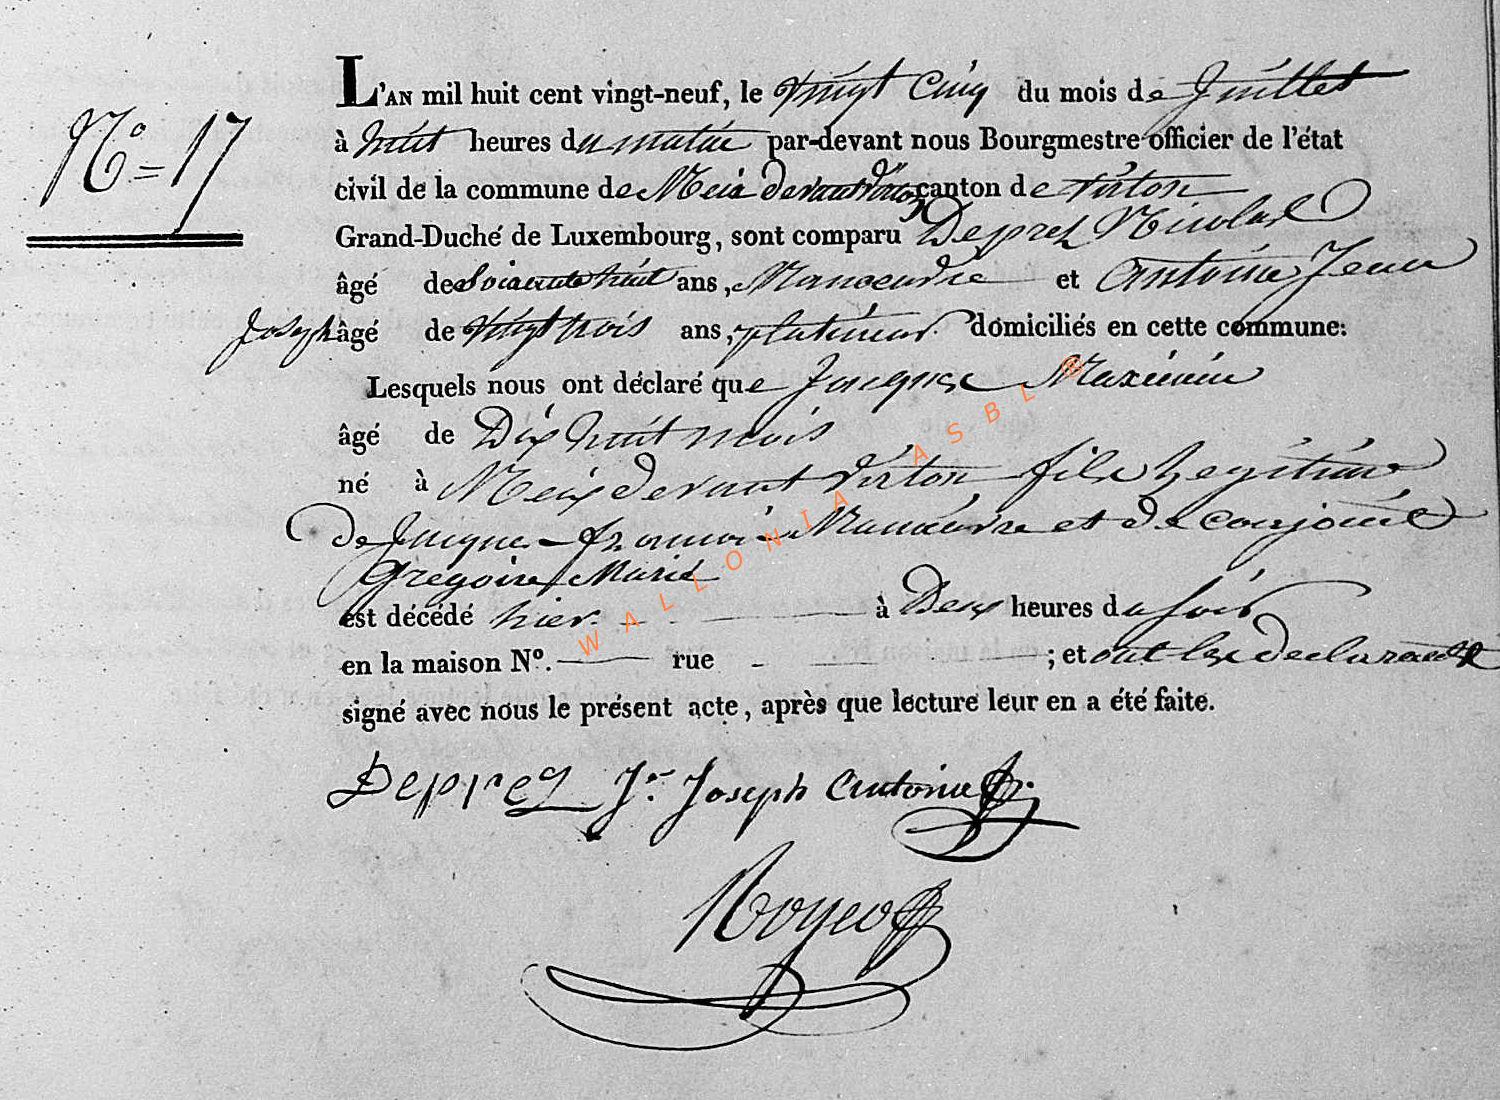 N° = 17
L'AN mil huit cent vingt-neuf, le vingt Cinq du mois de Juillet
à huit heures du matin par-devant nous Bourgmestre officier de l'état
civil de la commune de Meix devant Virton canton de virton
Grand-Duché de Luxembourg, sont comparu Deprez Nicolas
âgé de Soixante huit ans, Manoeuvre et Antoine Jean
Joseph âgé de vingt trois ans, platineur domiciliés en cette commune:
Lesquels nous ont déclaré que Jacques Maximin
âgé de Dix huit mois
né à Meix devant Virton fils Legitime
de Jacques François Manoeuvre et de conjointe
Gregoire Marie
est décédé hier à Deux heures du soir
en la maison N°. rue ; et ont les declarants
signé avec nous le présent acte, après que lecture leur en a été faite.
Deprez Jn Joseph Antoine
WALLONIA ASBL ®